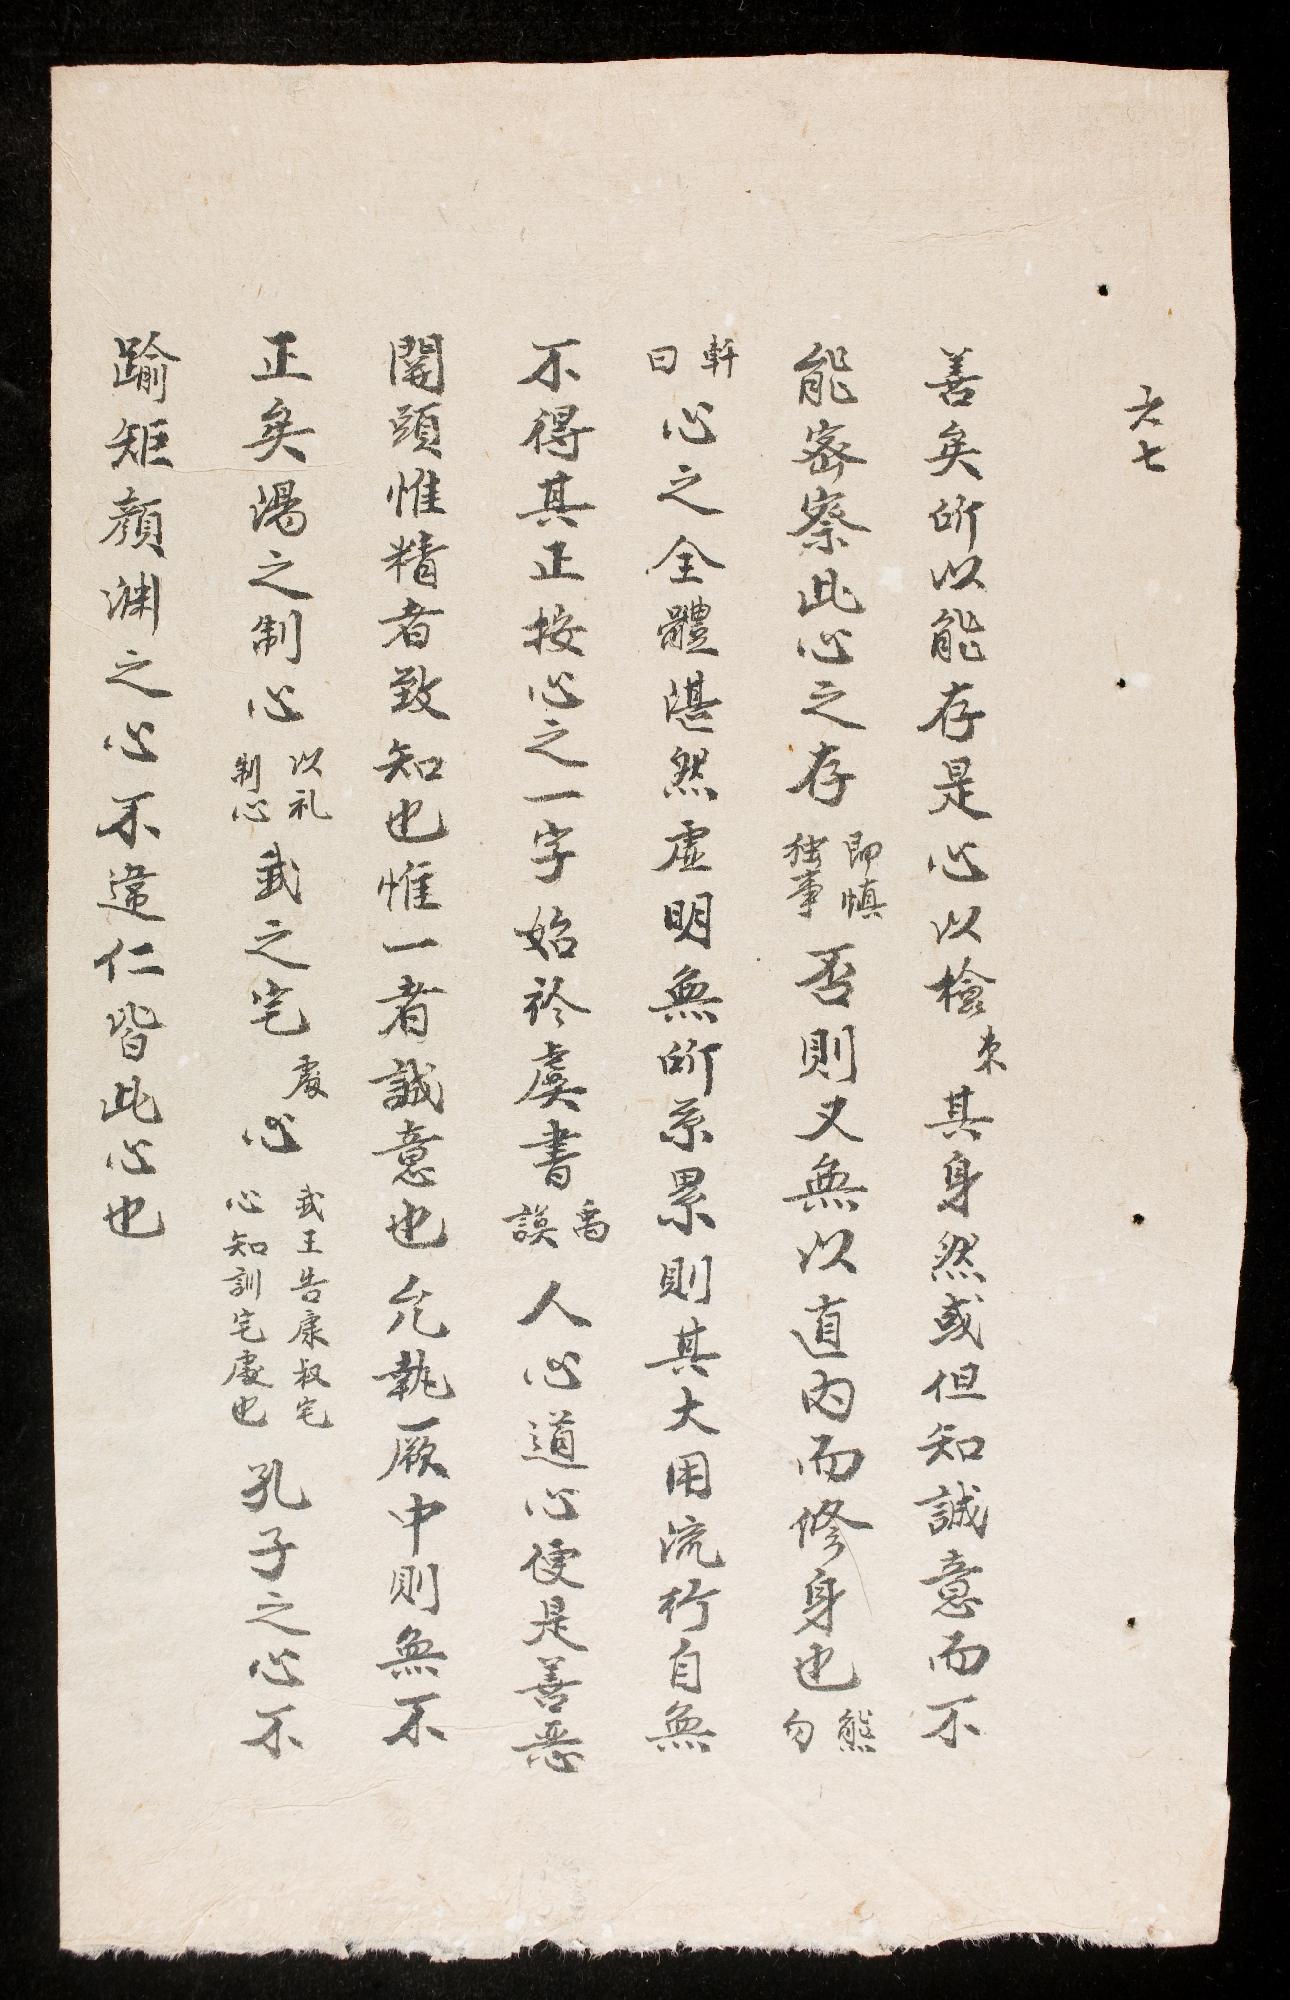 六七
善矣所以能存是心以檢束其身然或但知誠意而不
能密察此心之存即慎独事否則又無以直內而修身也熊勿
軒曰心之全體湛然虛明無所系累則其大用流行自無
不得其正按心之一字始於虞書禹謨人心道心便是善恶
開頭惟精者致知也惟一者誠意也允執厥中則無不
正矣湯之制心以礼制心武之宅處心武王告康叔宅心知訓宅處也孔子之心不
踰矩顏渊之心不違仁皆此心也